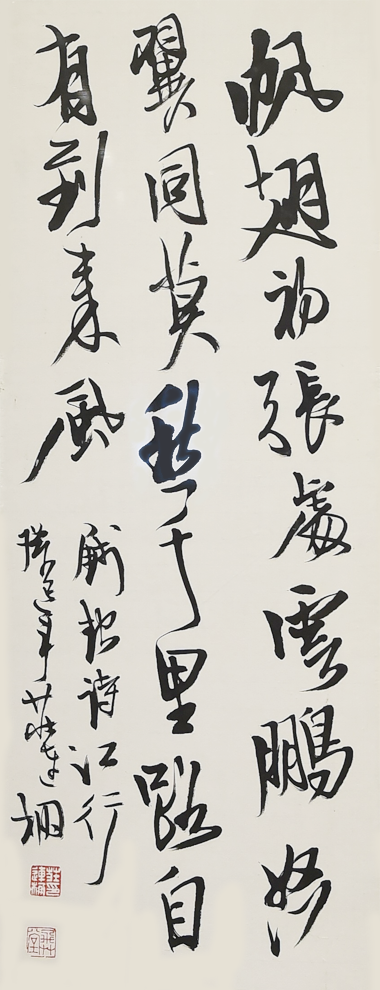 帆翅初張處雲鵬怒
翼同莫愁千里路自
有到來風
錢起詩江行
年